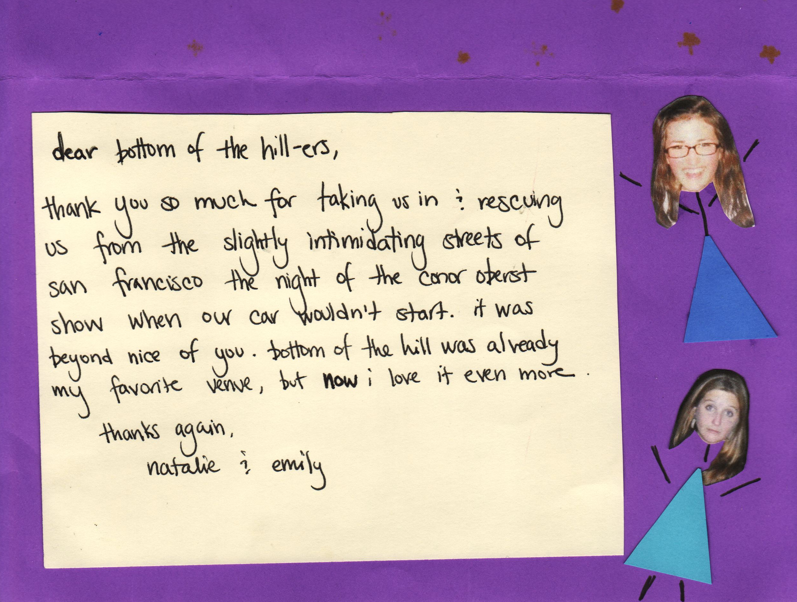 dear bottom of the hill-ers,
thank you so much for taking us in & rescuing
us from the slightly intimidating streets of
san francisco the night of the conor oberst
show when our car wouldn't start. it was
beyond nice of you. bottom of the hill was already
my favorite venue, but now i love it even more.
thanks again,
natalie & emily